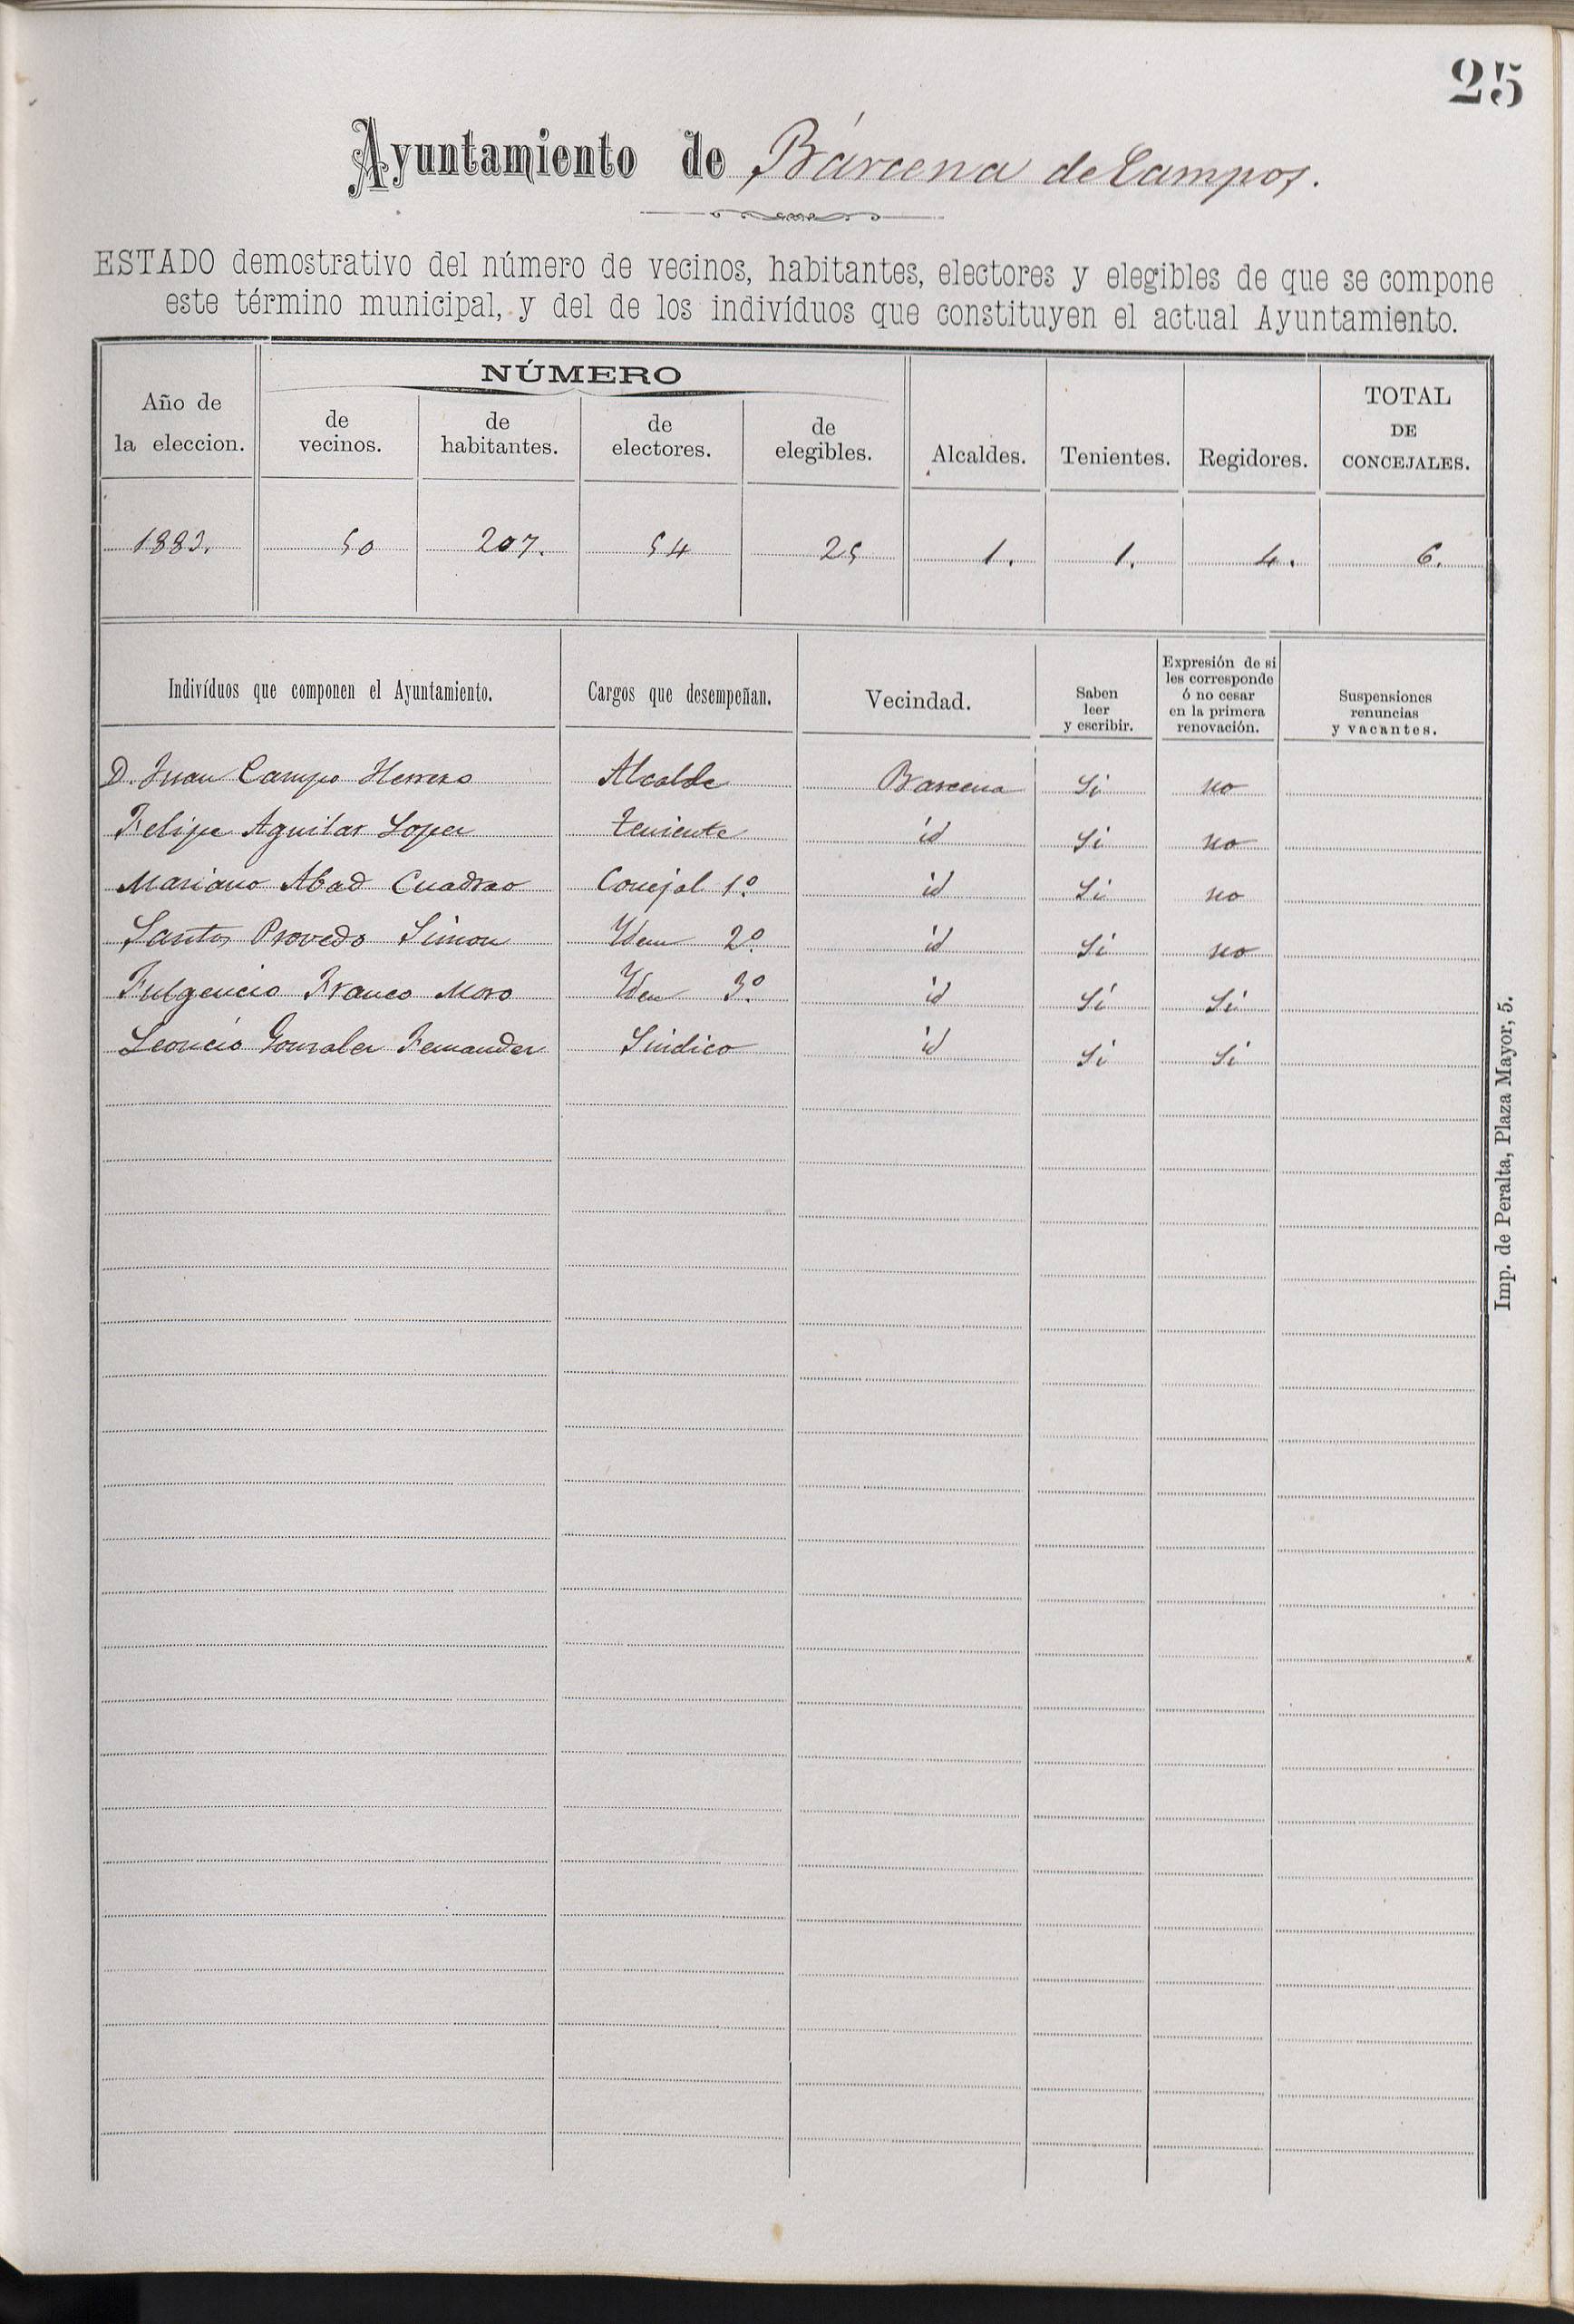 25
Ayuntamiento de Bárcena de Campos.
ESTADO demostrativo del número de vecinos, habitantes, electores y elegibles de que se compone
este término municipal, y del de los indivíduos que constituyen el actual Ayuntamiento.
Año de la eleccion. NÚMERO de vecinos. de habitantes. de electores. de elegibles. Alcaldes. Tenientes. Regidores. TOTAL DE CONCEJALES.
1883. 50 207. 54 25 1. 1. 4. 6.
Indivíduos que componen el Ayuntamiento. Cargos que desempeñan. Vecindad. Saben leer y escribir. Expresión de si les corresponde ó no cesar en la primera renovación. Suspensiones renuncias y vacantes.
D. Juan Campo Herrero Alcalde Barcena Si no
Felipe Aguilar Lopez teniente id Si no
Mariano Abad Cuadrao Concejal 1º. id Si no
Santos Provedo Simon Ydem 2º. id Si no
Fulgencio Franco Moro Yden 3º. id Si Si
Leoncio Gonzalez Fernandez Sindico id Si Si
Imp. de Peralta, Plaza Mayor, 5.